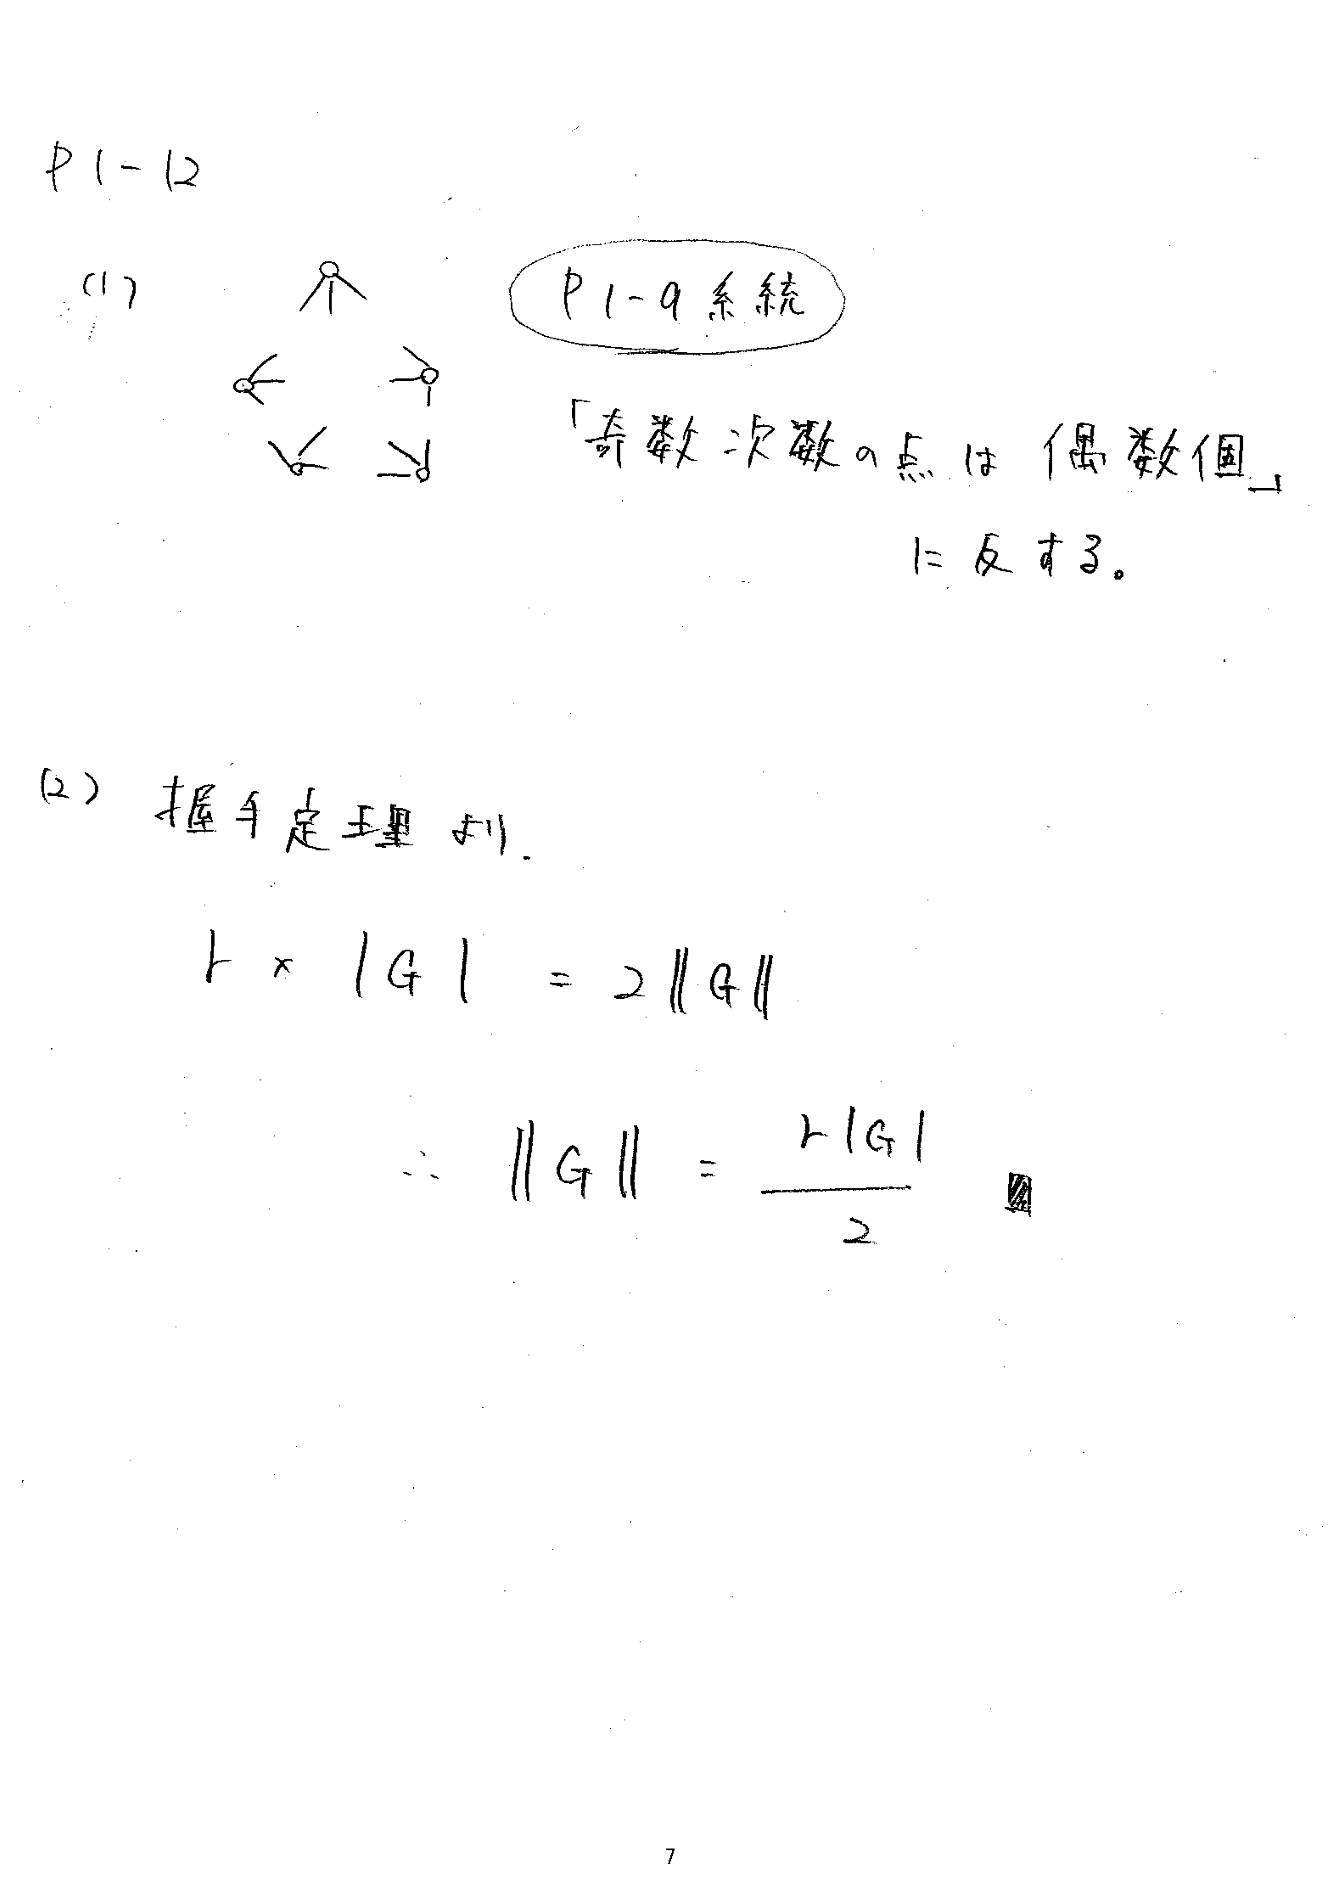 P1-12
(1)
P1-9系統
「奇数次数の点は偶数個」
に反する。
(2) 握手定理より.
r × |G| = 2||G||
∴ ||G|| = r|G| / 2
7